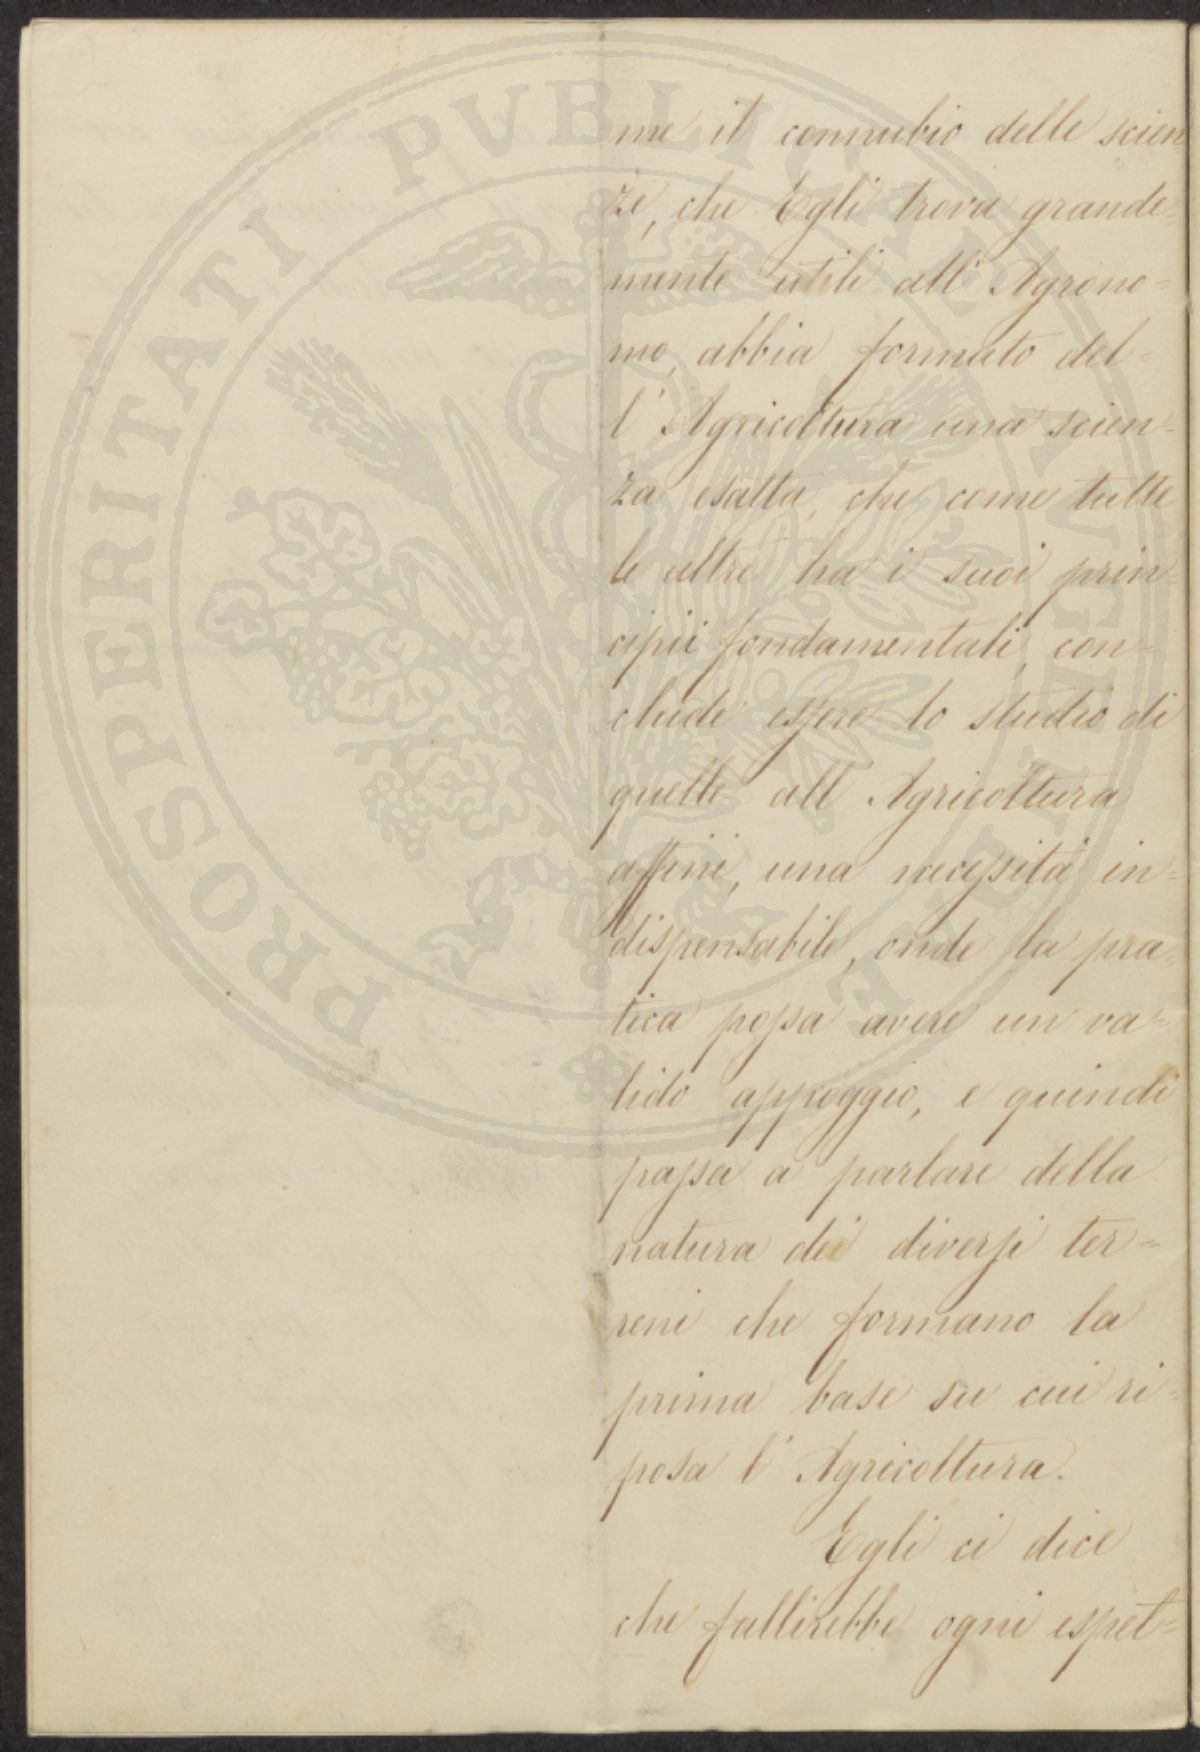 me il connubio delle scien
ze, che Egli trova grande=
mente utili all'Agrono=
mo, abbia formato del=
l'Agricoltura una scien=
za esatta, che come tutte
le altre ha i suoi prin=
cipii fondamentali, con=
chiude essere lo studio di
quelle all'Agricoltura
affini, una necessità in=
dispensabile, onde la pra=
tica possa avere un va=
lido appoggio, e quindi
passa a parlare della
natura dei diversi ter=
reni che formano la
prima base su cui ri=
posa l'Agricoltura.
Egli ci dice
che fallirebbe ogni espet=
PROSPERITATI PUBLICAE